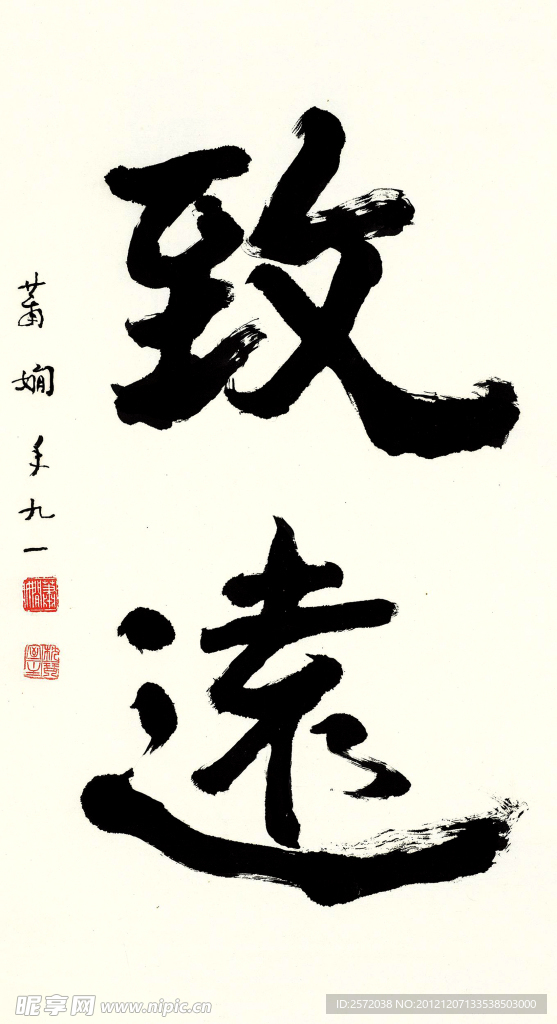 致遠
蕭嫻年九一
昵享网 www.nipic.cn
ID:2572038 NO:20121207133538503000